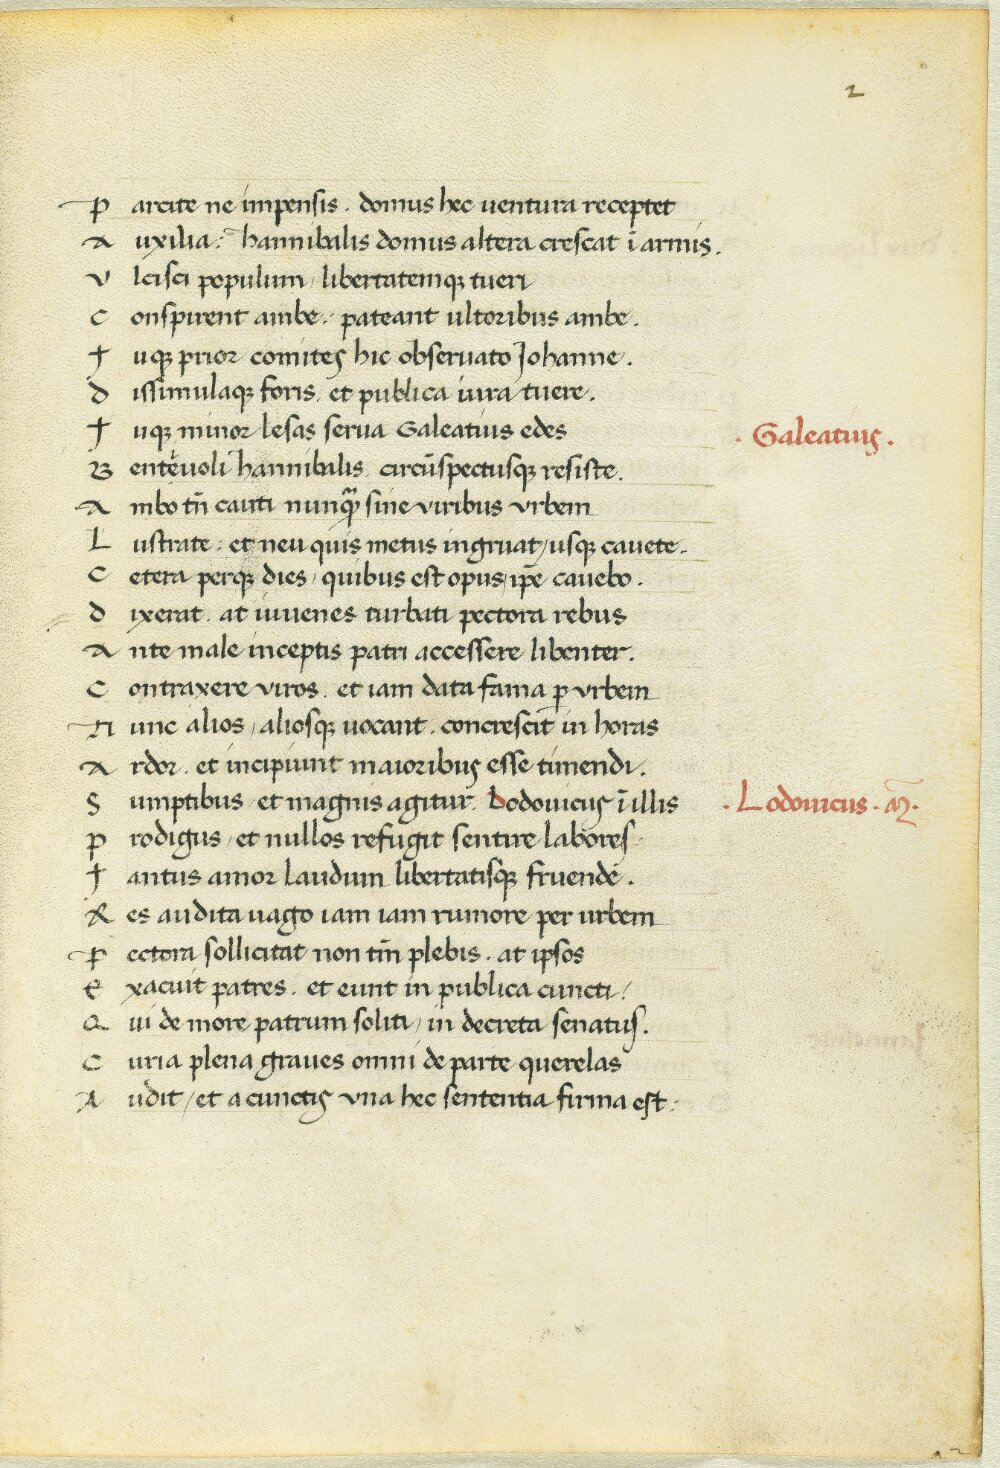 2
Parcite ne impensis. domus hec uentura receptet
Auxilia: hannibalis domus altera crescat ī armis.
Vlcisci populum, libertatemqꝫ tueri
Conspirent ambe. pateant ultoribus ambe.
Tuqꝫ prior comites hic obseruato Johanne.
Dissimulaqꝫ foris. et publica iura tuere.
Tuqꝫ minor lesas serua Galeatius edes
· Galeatius.
Benteuoli hannibalis circūspectusqꝫ resiste.
Ambo tn̄ cauti nunqᷓ sine viribus vrbem
Lustrate. et neu quis metus ingruat, usqꝫ cauete.
Cetera perqꝫ dies, quibus est opus, ip̄e cauebo.
Dixerat. at iuuenes turbati pectora rebus
Ante male inceptis patri accessere libenter.
Contraxere viros. et iam data fama ꝑ vrbem
Nunc alios, aliosqꝫ uocant. concrescit in horas
Ardor. et incipiunt maioribus esse timendi.
Sumptibus et magnis agitur. Lodouicus ī illis
· Lodouicus.
Prodigus, et nullos refugit sentire labores
Tantus amor laudum libertatisqꝫ fruende.
Res audita uago iam iam rumore per urbem
Pectora sollicitat non tm̄ plebis. at ipsos
Exacuit patres. et eunt in publica cuncti.
Qui de more patrum soliti, in decreta senatus.
Curia plena graues omni de parte querelas
Audit, et a cunctis vna hec sententia firma est.